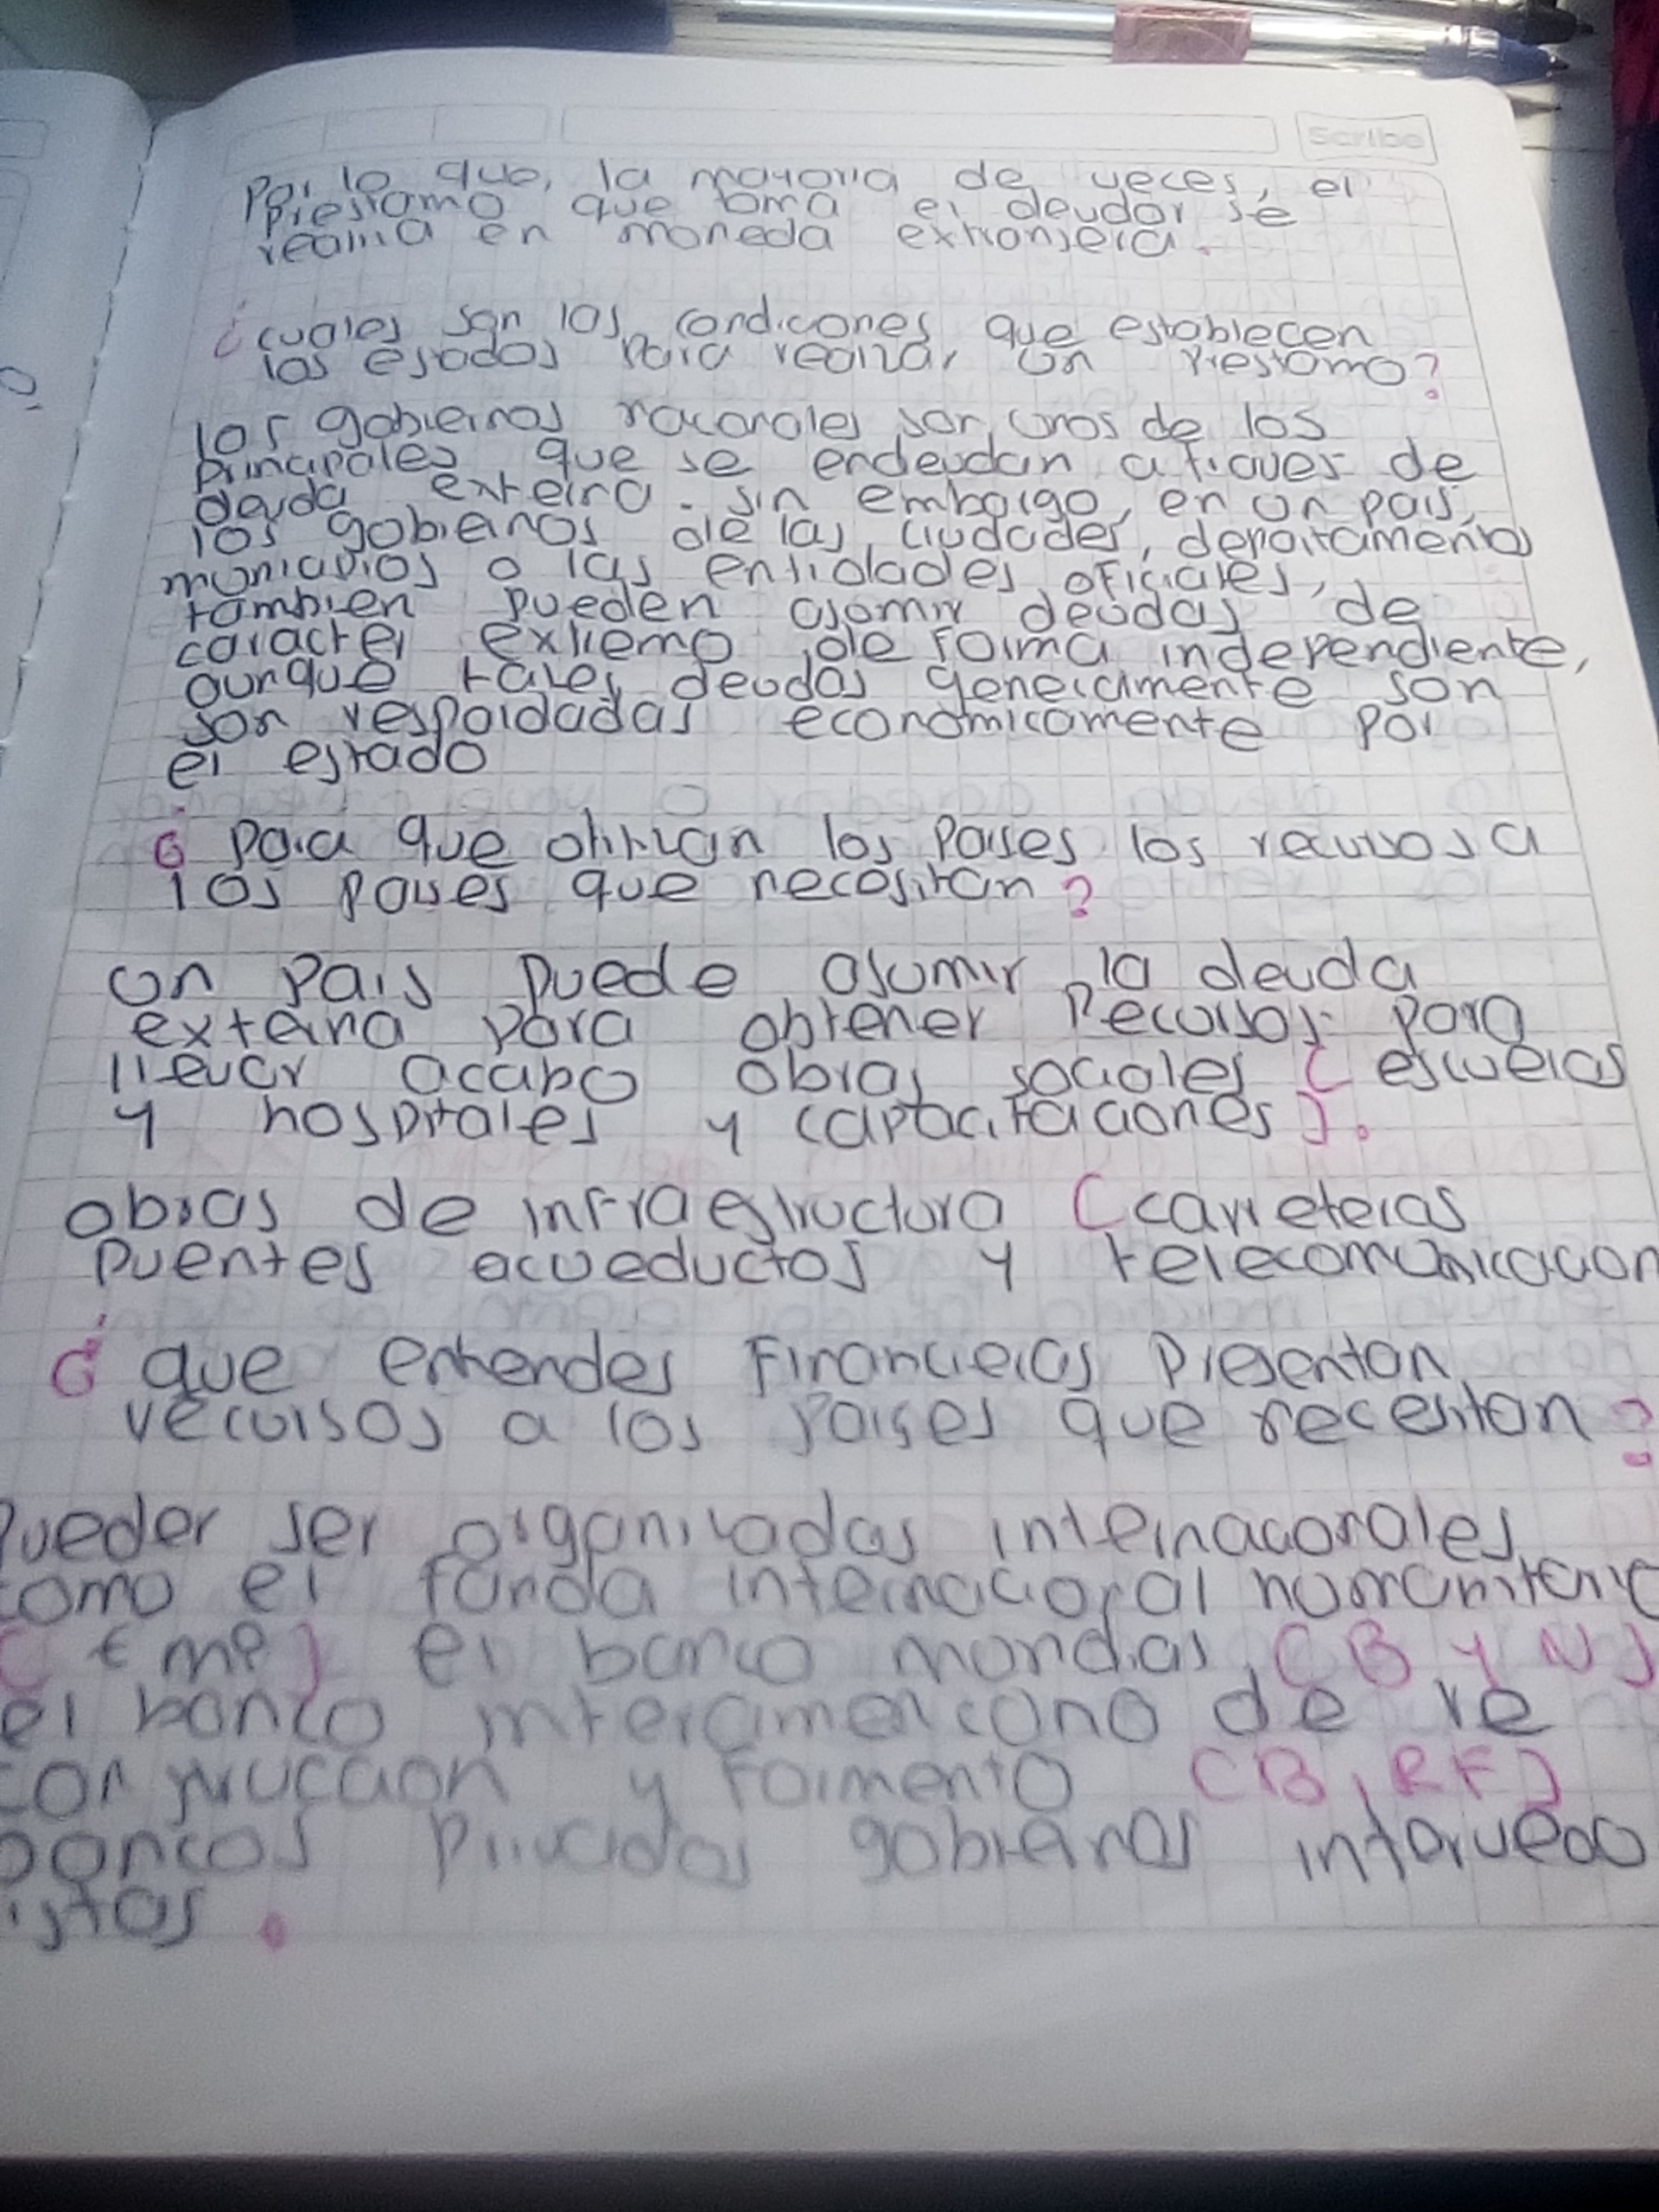 Scribe
Por lo que, la mayoria de veces, el
prestamo que toma el deudor se
realiza en moneda extranjera.
¿cuales son las condicones que establecen
los estados para realizar un prestamo?
los gobiernos naconales son unos de los
principales que se endeudan a traves de
deuda exteirna. sin embargo, en un pais,
los gobiernos de las ciudades, departamento
municipios o las entidades oficiales,
tambien pueden asomir deudas de
caracter extremo de forma independiente,
aunque tales deudas generamente son
son respaldadas economicamente por
el estado
¿ para que utilizan los paises los recursos a
los paises que necesitan?
un pais puede asumir la deuda
externa para obtener Recursos para
llevar acabo obras sociales (escuelas
y hospitales y capacitaciones).
obras de infraestructura (carreteras
puentes acueductos y telecomunicacion
¿ que entiendes Financieras Presentan
recursos a los paises que necesitan?
Pueden ser organizadas internaconales
como el fonda internacional
el banco mondial, (B y N)
el banco interamericano de re
construccion y formento (B, RF)
bancos privados gobiernos
istas.